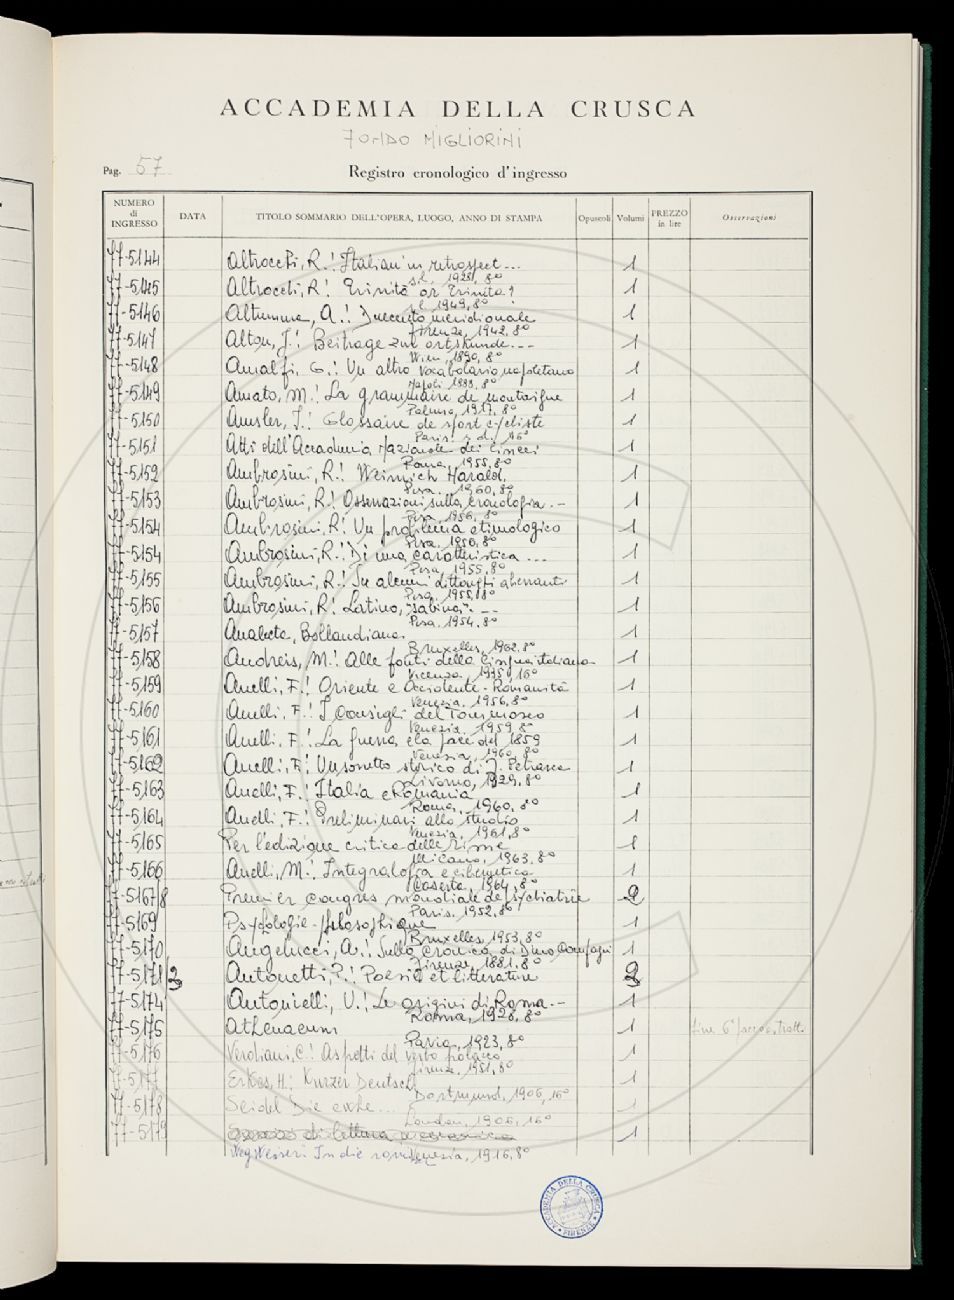 ACCADEMIA DELLA CRUSCA
FONDO MIGLIORINI
Pag. 57
Registro cronologico d'ingresso
NUMERO di INGRESSO DATA TITOLO SOMMARIO DELL'OPERA, LUOGO, ANNO DI STAMPA Opuscoli Volumi PREZZO in lire Osservazioni
77-5144 Altrocchi, R.: Italian in retrospect... 1
s.l., 1928, 8°
77-5145 Altrocchi, R.: Trinità or Trinita? 1
s.l. 1949, 8°
77-5146 A.: Duecento meridionale 1
Firenze, 1942, 8°
77-5147 Alton, J.: Beitrage zur ortskunde... 1
Wien, 1890, 8°
77-5148 Amalfi, G.: Un altro vocabolario napoletano 1
Napoli 1889, 8°
77-5149 Amato, M.: La grammaire de montaigne 1
Palermo, 1917, 8°
77-5150 Amsler, J.: Glossaire de sport cycliste 1
Paris. s.d., 16°
77-5151 Atti dell'Accademia Nazionale dei Lincei 1
Roma, 1955, 8°
77-5152 Ambrosini, R.: Weinrich Harald. 1
Pisa. 1960, 8°
77-5153 Ambrosini, R.: Osservazioni sulla cronologia. - 1
Pisa, 1956, 8°
77-5154 Ambrosini, R.: Un problema etimologico 1
Pisa. 1956, 8°
77-5154 Ambrosini, R.: Di una caratteristica ... 1
Pisa, 1955, 8°
77-5155 Ambrosini, R.: Su alcuni dittonghi 1
Pisa, 1955, 8°
77-5156 Ambrosini, R.: Latino, "sabino". -- 1
Pisa. 1954, 8°
77-5157 Analecta, Bollandiana. 1
Bruxelles, 1962, 8°
77-5158 Andreis, M.: Alle fonti della lingua italiana 1
Vicenza, 1935, 16°
77-5159 Anelli, F.: Oriente e Occidente - Romanità 1
Venezia, 1956, 8°
77-5160 Anelli, F.: I consigli del Tommaseo 1
Venezia, 1959, 8°
77-5161 Anelli, F.: La guerra e la pace del 1859 1
Venezia, 1960, 8°
77-5162 Anelli, F.: Un sonetto storico di F. Petrarca 1
Livorno, 1929, 8°
77-5163 Anelli, F.: Italia e Romania 1
Roma, 1960, 8°
77-5164 Anelli, F.: Preliminari allo studio 1
Venezia, 1961, 8°
77-5165 Per l'edizione critica delle rime 1
Milano, 1963, 8°
77-5166 Anelli, M.: Integralogra e cibernetica 1
Caserta, 1964, 8°
77-5167/8 Premier congres mondiale de psychiatrie 2
Paris. 1952, 8°
77-5169 Psychologie-philosophique 1
Bruxelles, 1953, 8°
77-5170 Angelucci, A.: Sulla cronica di Dino Compagni 1
Firenze, 1881, 8°
77-5171/2 Antonetti, P.: Poesie et litterature 2
77-5174 Antonielli, U.: Le origini di Roma. - 1
Roma, 1928, 8°
77-5175 Athenaeum 1
Pavia, 1923, 8°
77-5176 Verdiani, C.: Aspetti del verbo polacco 1
Firenze, 1951, 8°
77-5177 H.: Kurzer Deutsch 1
Dortmund, 1906, 16°
77-5178 Seidel Die ... 1
London, 1906, 16°
77-5179 di lettura 1
Wegweiser: In die Venezia, 1916, 8°
ACCADEMIA DELLA CRUSCA • FIRENZE •